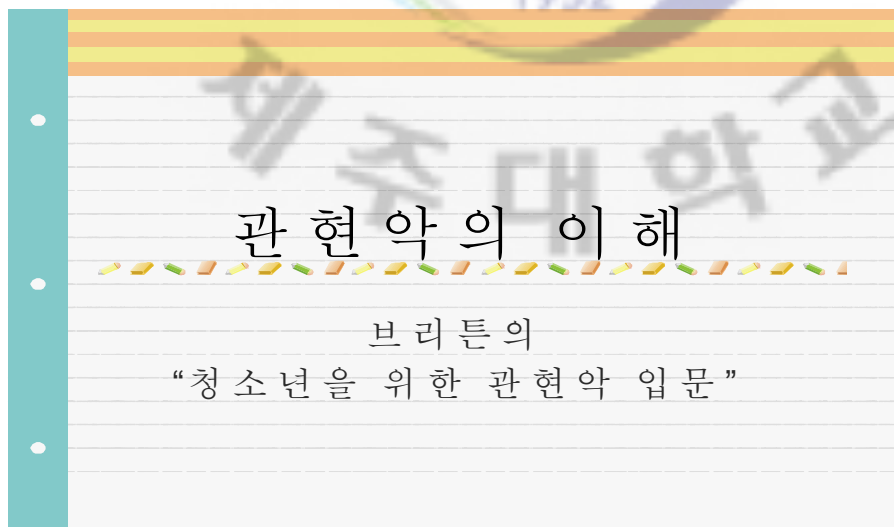 1952
제주대학교
관현악의 이해
브리튼의
“청소년을 위한 관현악 입문”